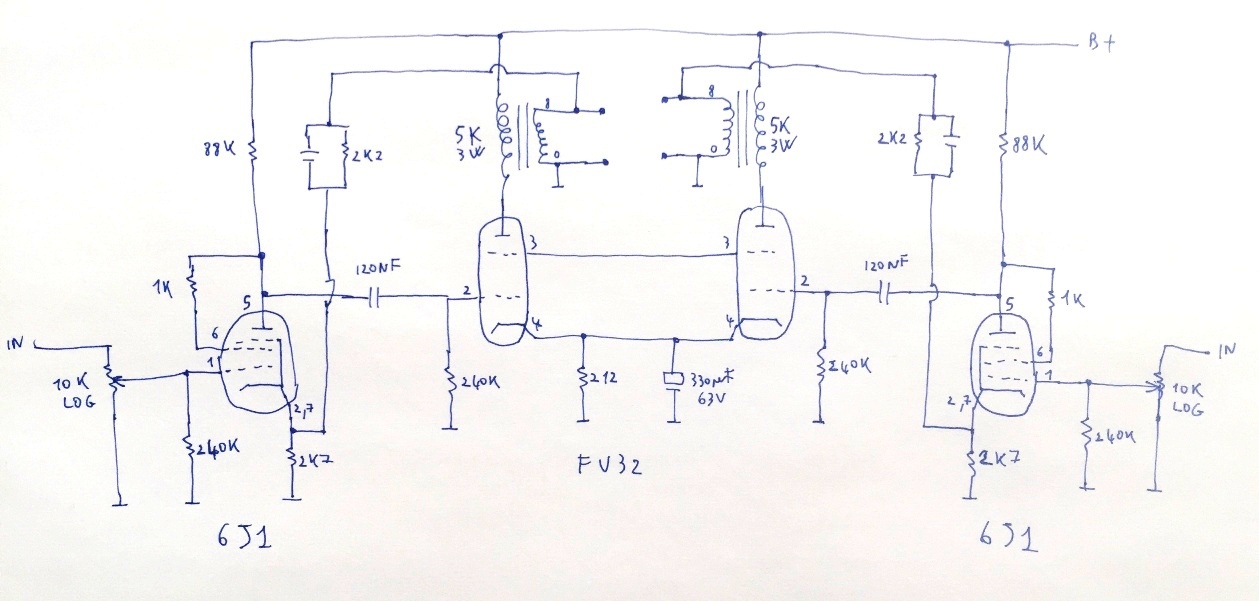 B+
8
8
5K
3W
5K
3W
88K
2K2
0
0
2K2
88K
3
3
120NF
120NF
1K
5
2
2
5
1K
6
4
4
6
IN
IN
1
1
10K
LOG
240K
212
330mF
63V
240K
10K
LOG
2,7
2,7
240K
2K7
2K7
240K
FV32
6J1
6J1